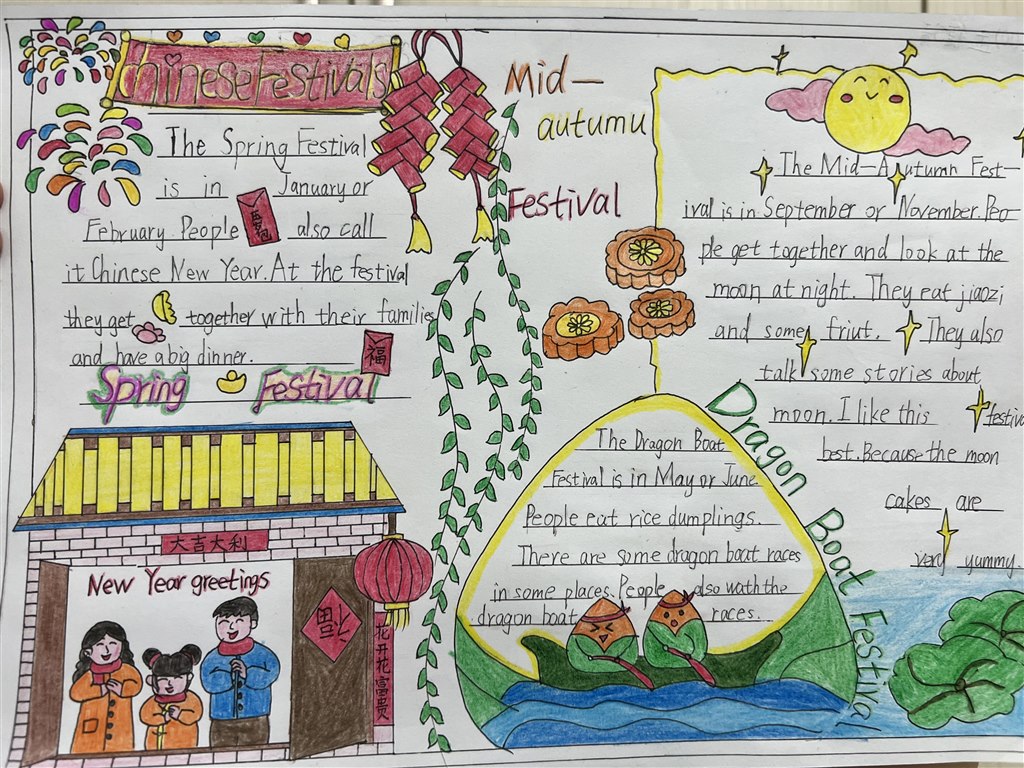 Chinese Festivals
The Spring Festival
is in January or
February People also call
it Chinese New Year. At the festival
they get together with their families
and have a big dinner.
福
Spring Festival
大吉大利
New Year greetings
福
花开花富贵
Mid-
autumu
Festival
The Mid-Autumn Fest-
ival is in September or November. Peo
ple get together and look at the
moon at night. They eat jiaozi
and some friut. They also
talk some stories about
moon. I like this festiva
best. Because the moon
cakes are
very yummy.
Dragon Boat Festival
The Dragon Boat
Festival is in May or June
People eat rice dumplings.
There are some dragon boat races
in some places. People also wath the
dragon boat races.